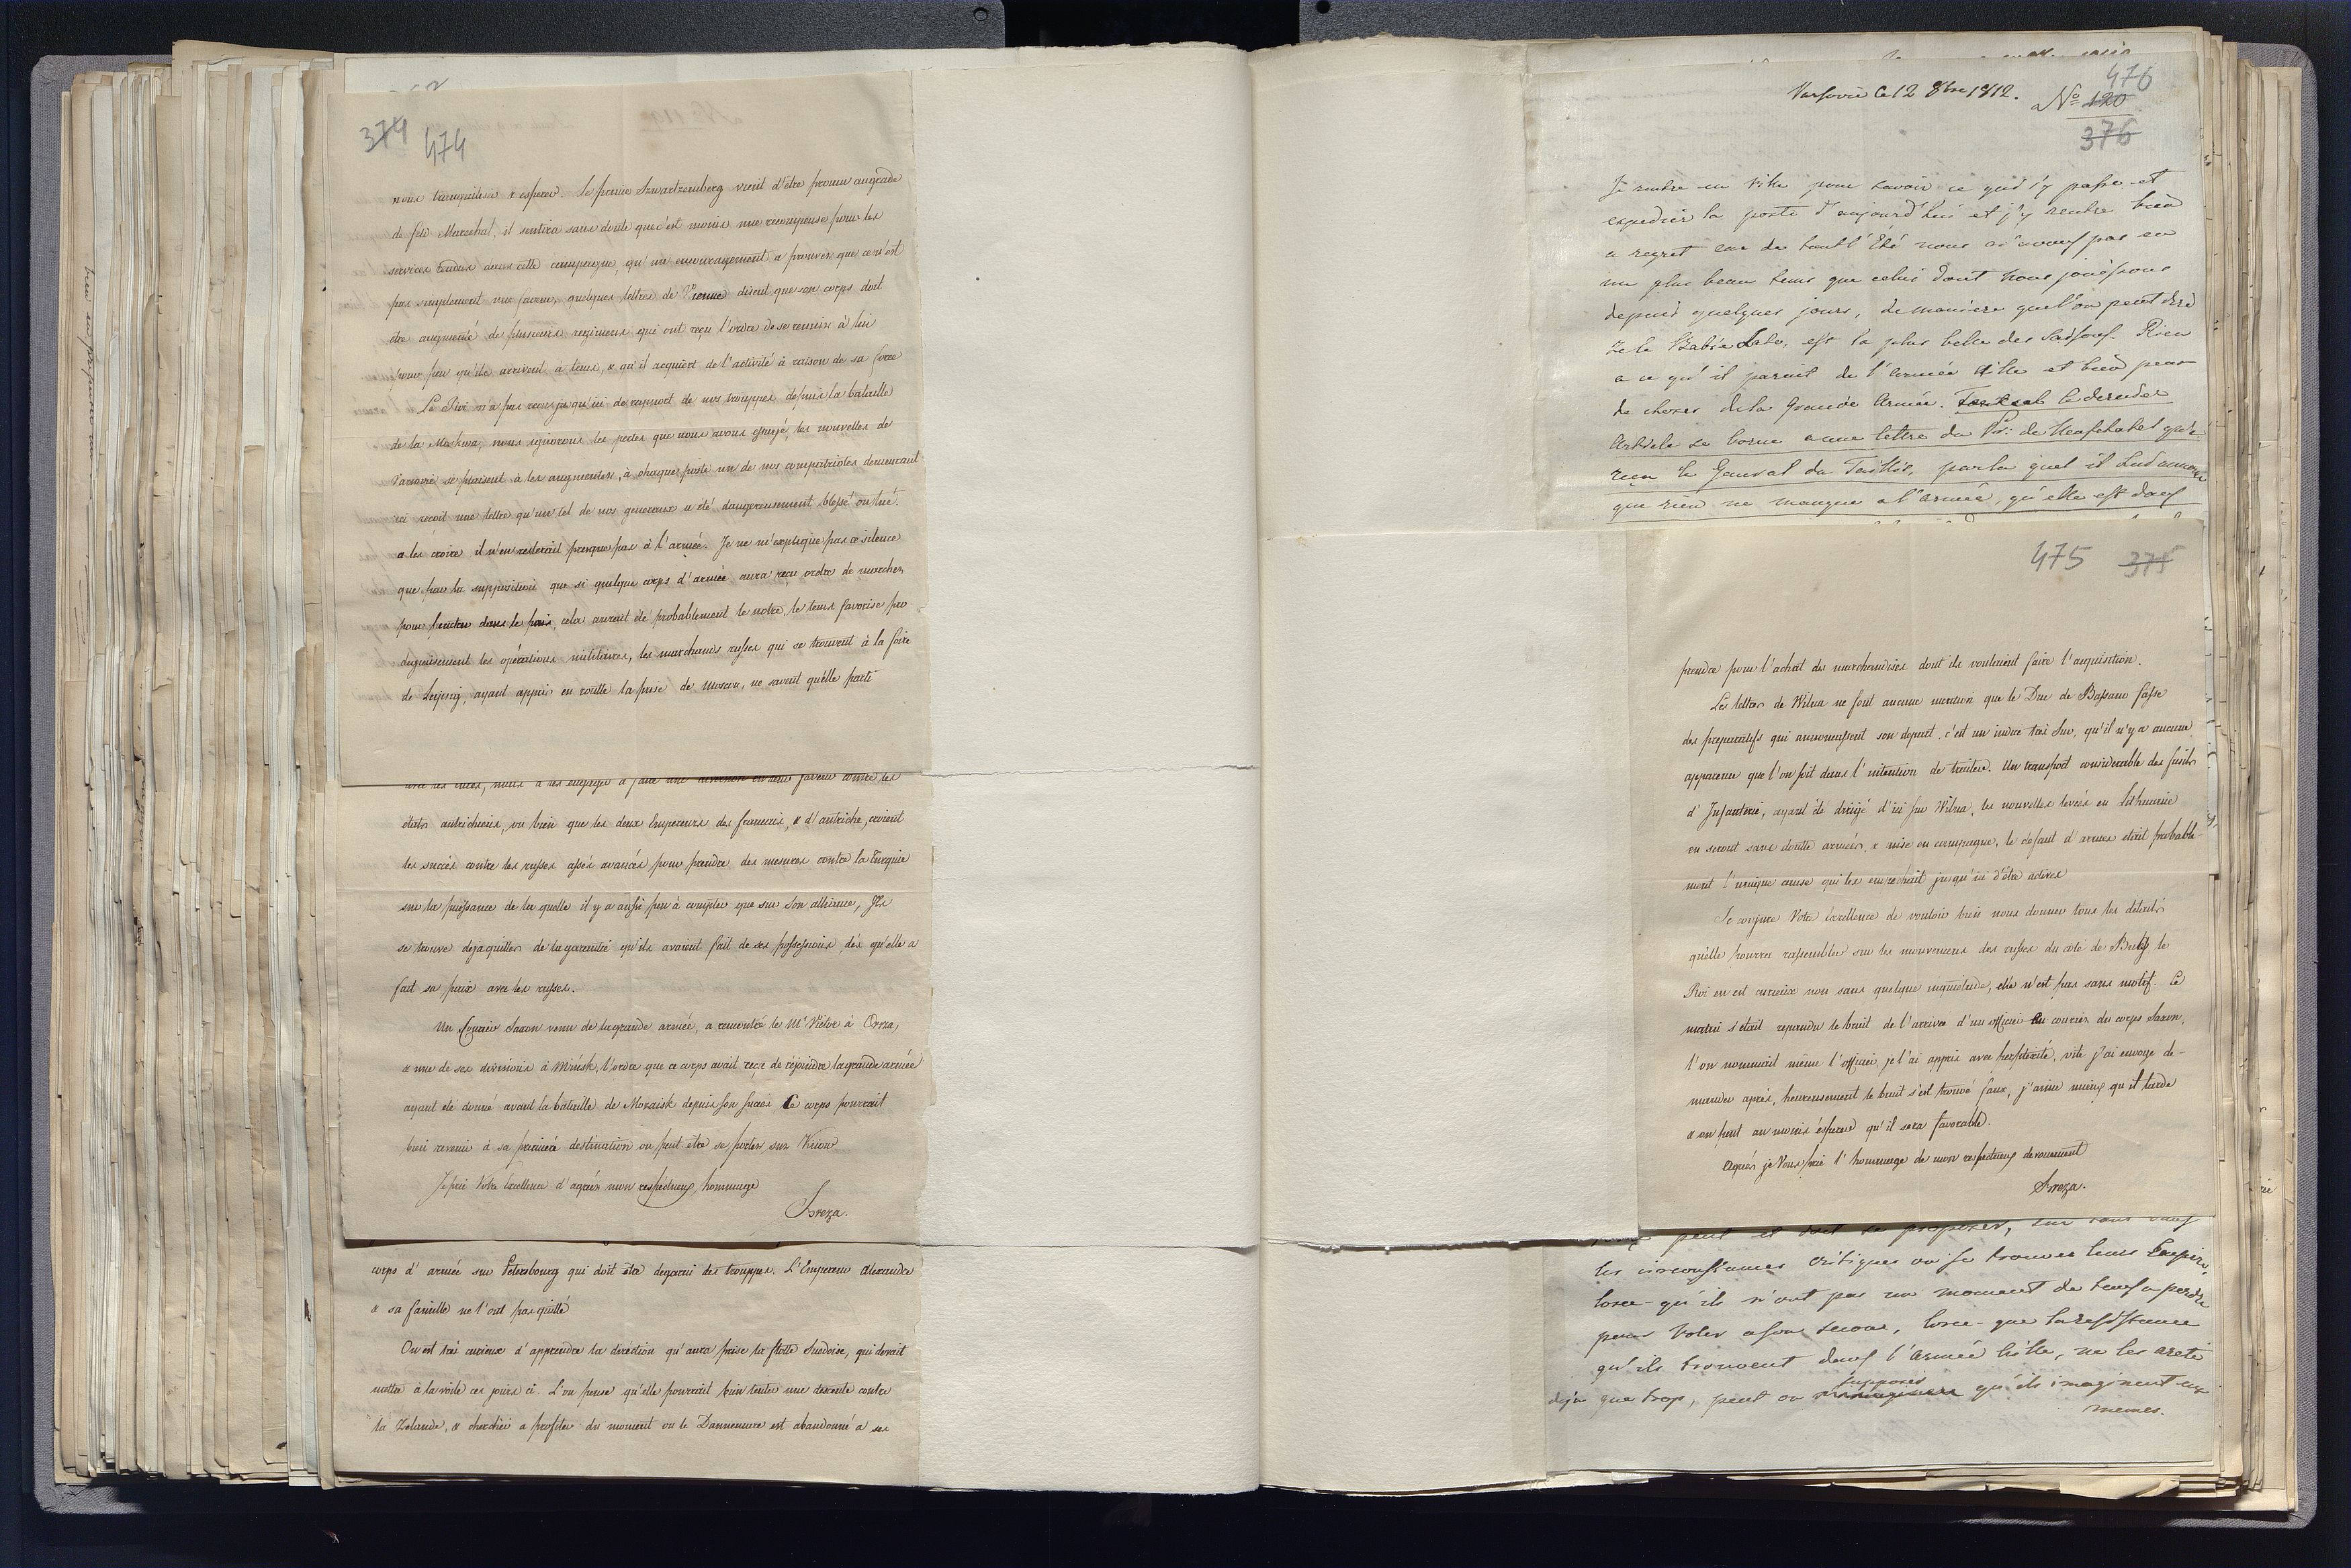 374 474
nous tranquiliser & esperer. le prince Szwartzemberg vient d'être promu au grade
de feld Marechal, il sentira sans doute que c'est moins une recompense pour les
services rendus dans cette campagne, qu'un encouragement a prouver que ce n'est
pas simplement une faveur, quelques lettres de Vienne disent que son corps doit
être augmenté de plusieurs regimens qui ont reçu l'ordre de se reunir à lui
pour peu qu'ils arrivent à tems, & qu'il acquiert de l'activité à raison de sa force
Le Roi n'a pas reçu jusqu'ici de rapport de nos trouppes depuis la bataille
de la Moskwa, nous ignorons les pertes que nous avons essuyé, les nouvelles de
Varsovie se plaisent à les augmenter, à chaque poste un de nos compatriotes demeurant
ici reçoit une lettre qu'un tel de nos generaux a été dangereusement blessé ou tué.
a les croire il n'en resterait presque pas à l'armée. Je ne m'explique pas ce silence
que par la supposition que si quelque corps d'armée aura reçu ordre de marcher
pour dans le pais, cela aurait été probablement le notre, le tems favorise pro-
digieusement les opérations militaires, les marchands russes qui se trouvent à la foire
de Leipzig, ayant appris en routte la prise de Moscou, ne savent quelle parti
états autrichiens, ou bien que les deux Empereurs des francais, & d'autriche, croient
les succès contre les russes assés avancés pour prendre des mesures contre la Turquie
sur la puissance de la quelle il y a aussi peu à compter que sur son alliance, Ils
se trouve deja quittes de la garantie qu'ils avaient fait de ses possessions, dès qu'elle a
fait sa paix avec les russes.
Un Courier Saxon venu de la grande armée, a rencontré le Ml Victor à Orsza,
& une de ses divisions à Minsk, l'ordre que ce corps avait reçu de réjoindre la grande armée
ayant été donné avant la bataille de Mozaisk depuis son succès Ce corps pourrait
bien revenir à sa première destination ou peut être se porter sur Kiiow.
Je prie Votre Excellence d'agréer mon respectueux hommage
Breza.
corps d'armée sur Petersbourg qui doit être degarni des trouppes. L'Empereur Alexandre
& sa famille ne l'ont pas quitté
On est très curieux d'apprendre la direction qu'aura prise la flotte Suedoise, qui devait
mettre à la voile ces jours ci. L'on pense qu'elle pourrait bien tenter une descente contre
la Zelande, & chercher a profiter du moment ou le Dannemarc est abandonné a ses
476
Varsovie le 12 8bre 1812. No 120
376
Je rentre en ville pour savoir ce qui s'y passe et
expedier la poste d'aujourd'hui et j'y rentre bien
a regret car de tout l'Eté nous n'avons pas eu
un plus beau tems que celui dont nous jouissons
depuis quelques jours, de maniere que l'on peut dire
que le Babie Lato, est la plus belle des saisons. Rien
a ce qu'il parait de l'armée et bien peu
de choses de la grande Armée. Tout le dernier
Article se borne a une lettre du Pr: de Neufchatel qu'a
reçu le General du Taillis, par la quel il lui annonce
que rien ne manque a l'armée, qu'elle est dans
475 375
prendre pour l'achat des marchandises dont ils voulaient faire l'acquisition.
Les lettres de Wilna ne font aucune mention que le Duc de Bassano fasse
des preparatifs qui annoncassent son depart. c'est un indice très sur, qu'il n'y a aucune
apparence que l'on soit dans l'intention de traiter. Un transport considerable des fusils
d'Infanterie, ayant été dirigé d'ici sur Wilna, les nouvelles levées en Lithuanie
en seront sans doutte armées, & mise en campagne, le defaut d'armes etait probable-
ment l'unique cause qui les empechait jusqu'ici d'être actives
Je conjure Votre Excellence de vouloir bien nous donner tous les détails
qu'elle pourra rassembler sur les mouvemens des russes du côté de le
Roi en est curieux non sans quelque inquietude, elle n'est pas sans motif. Ce
matin s'était repandu le bruit de l'arrivée d'un officier en courier du corps Saxon,
l'on nommait même l'officier, je l'ai appris avec perplexité, vite j'ai envoyé de-
mander après, heureusement le bruit s'est trouvé faux, j'aime mieux qu'il tarde
& on peut au moins éspérer qu'il sera favorable.
Agréés je Vous prie l'hommage de mon respectueux devouement
Breza.
peut et doit se proposer, car sans
les circonstances critiques ou se trouve leur Empire,
lorsqu'ils n'ont pas un moment de tems a perdre
pour voler a son secour, lors-que la resistance
qu'ils trouvent dans l'armée, ne les arete
deja que trop, peut on supposer qu'ils imaginent eux
memes.